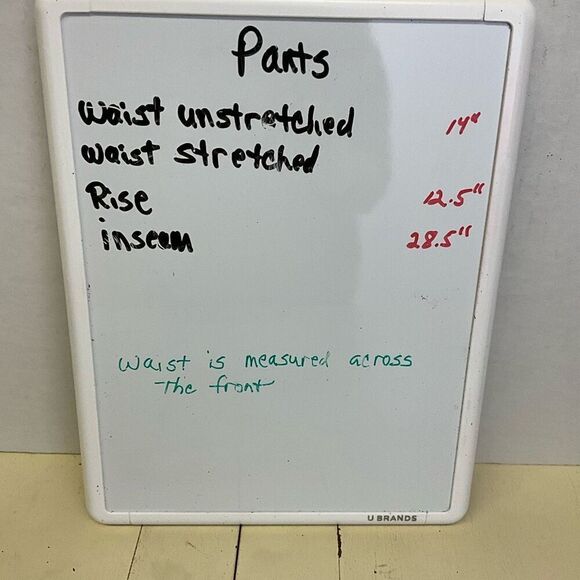 Pants
Waist unstretched 14"
waist stretched
Rise 12.5"
inseam 28.5"
Waist is measured across
The front
U BRANDS